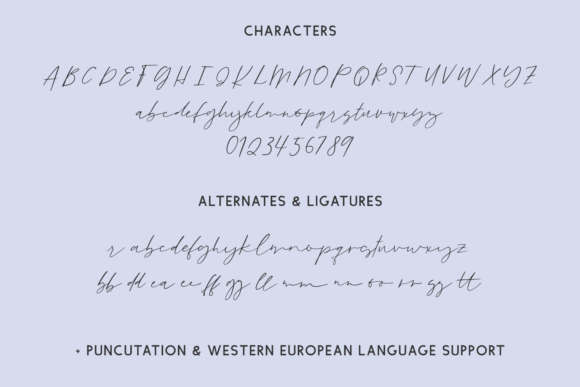 CHARACTERS
A B C D E F G H I J K L M N O P Q R S T U V W X Y Z
abcdefghijklmnopqrstuvwxyz
0123456789
ALTERNATES & LIGATURES
r abcdefghijklmnopqrstuvwxyz
bb dd ea ee ff gg ll mm nn oo rr ss tt
+ PUNCUTATION & WESTERN EUROPEAN LANGUAGE SUPPORT